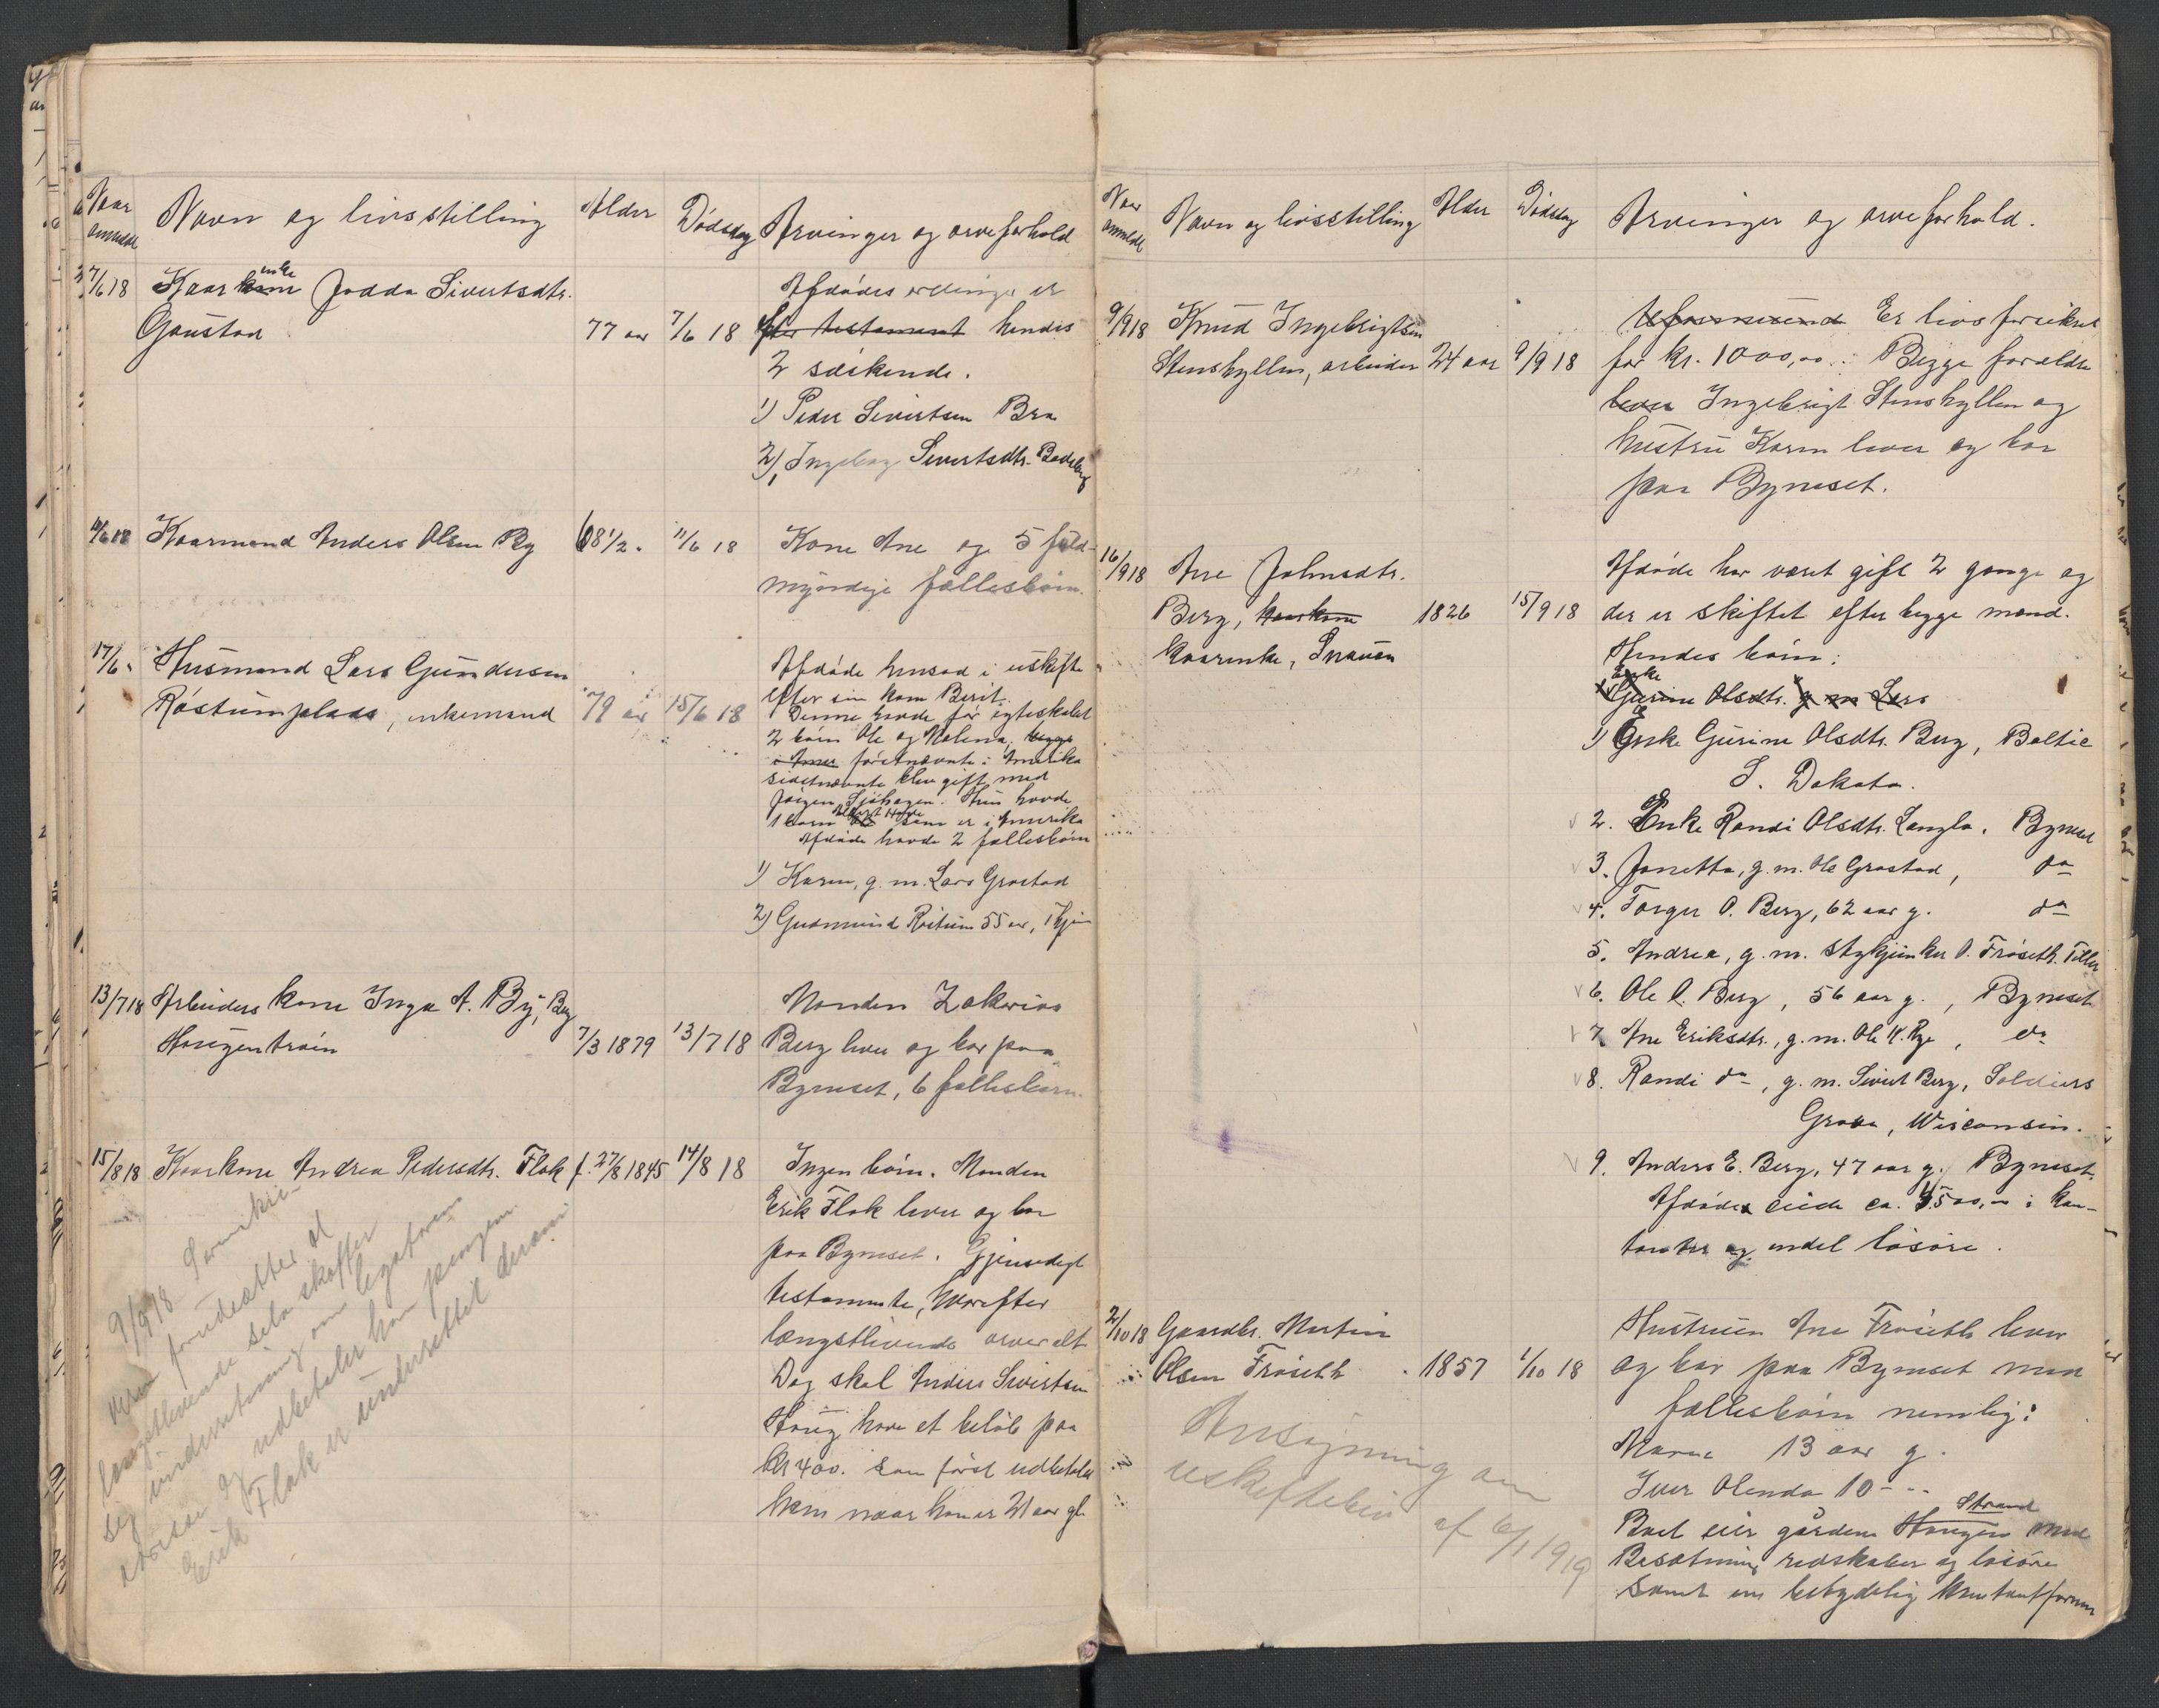 Naar anmeldt
Navn og livsstilling
Alder
Dødsdag
Arvinger og arveforhold
7/6 18
Kaarkone enke Jodda Sivertsdtr.
Gaustad
77 aar
7/6 18
Afdødes arvinger er
efter testament hendes
2 søskende.
1) Peder Sivertsen Bra
2) Ingeborg Sivertsdtr.
11/6 18
Kaarmand Anders Olsen By
68 1/2 "
11/6 18
Kone Ane og 5 fuld-
myndige fællesbørn.
17/6 "
Husmand Lars Gundersen
Røstumplads, enkemand
79 aar
15/6 18
Afdøde hensad i uskifte
efter sin kone Berit.
Denne havde før egteskabet
2 børn Ole og Malena, begge
i Amer førstnævnte i Amerika
sidstnævnte blev gift med
Jørgen Sjøhagen. Hun havde
1 barn som er i Amerika
Afdøde havde 2 fællesbørn
1) Karen, g. m. Lars Grøstad
2) Gudmund Røstum 55 aar,
13/7 18
Arbeiders kone Inga A. By, Berg
Haugentrøin
7/3 1879
13/7 18
Manden Zakarias
Berg lever og bor paa
Byneset, 6 fællesbørn.
15/8 18
Kaarkone Andrea Pedersdtr. Flak
f. 27/8 1845
14/8 18
Ingen børn. Manden
Erik Flak lever og bor
paa Byneset. Gjensidigt
testamente, hvorefter
længstlevende arver alt
Dog skal Anders Sivertsen
Haug have et beløb paa
kr 400. som først udbetales
ham naar han er 21 aar gl.
9/9 18 Sorenskri-
veren forudsætter at
længstlevende selv skaffer
sig underretning om legatarens
adresse og udbetaler ham pengene.
Erik Flak er underrettet derom
Naar anmeldt
Navn og livsstilling
Alder
Dødsdag
Arvinger og arveforhold.
9/9 18
Knud Ingebrigtsen
Stenshyllen, arbeider
24 aar
9/9 18
Er livsforsikret
for kr. 1000,00. Begge forældre
lever Ingebrigt Stenshyllen og
hustru Karen lever og bor
paa Byneset.
16/9 18
Ane Johnsdtr.
Berg, kaarkone
kaarenke,
1826
15/9 18
Afdøde har været gift 2 gange og
der er skiftet efter begge mænd.
Hendes børn:
Enke
Gurine Olsdtr. g m Lars
1) Enke Gurine Olsdtr. Berg, Baltic
S. Dakota.
2. Enke Randi Olsdtr. Langla, Byneset
3. Janetta, g. m. Ole Grøstad, do
4. Torger O. Berg, 62 aar g. do
5. Andrea, g. m. Stykjunker O. Frøseth. Tiller
6. Ole O. Berg, 56 aar g., Byneset
7. Ane Eriksdtr., g. m. Ole K. Rye, do
8. Randi do, g. m. Sivert Berg, Soldiers
Grove, Wisconsin.
9. Anders E. Berg, 47 aar g. Byneset.
Afdøde eiede ca. 4500,- i kon-
tanter og endel løsøre.
2/10 18
Gaardbr. Martin
Olsen Frøseth
1857
1/10 18
Hustruen Ane Frøseth lever
og bor paa Byneset med
fællesbørn nemlig:
Maren 13 aar g.
Iver Olendo 10 - -
Boet eier gården Haugen Strand med
Besætning redskaber og løsøre
samt en betydelig kontantformue
Ansøgning om
uskiftebevi
af 6/1 1919